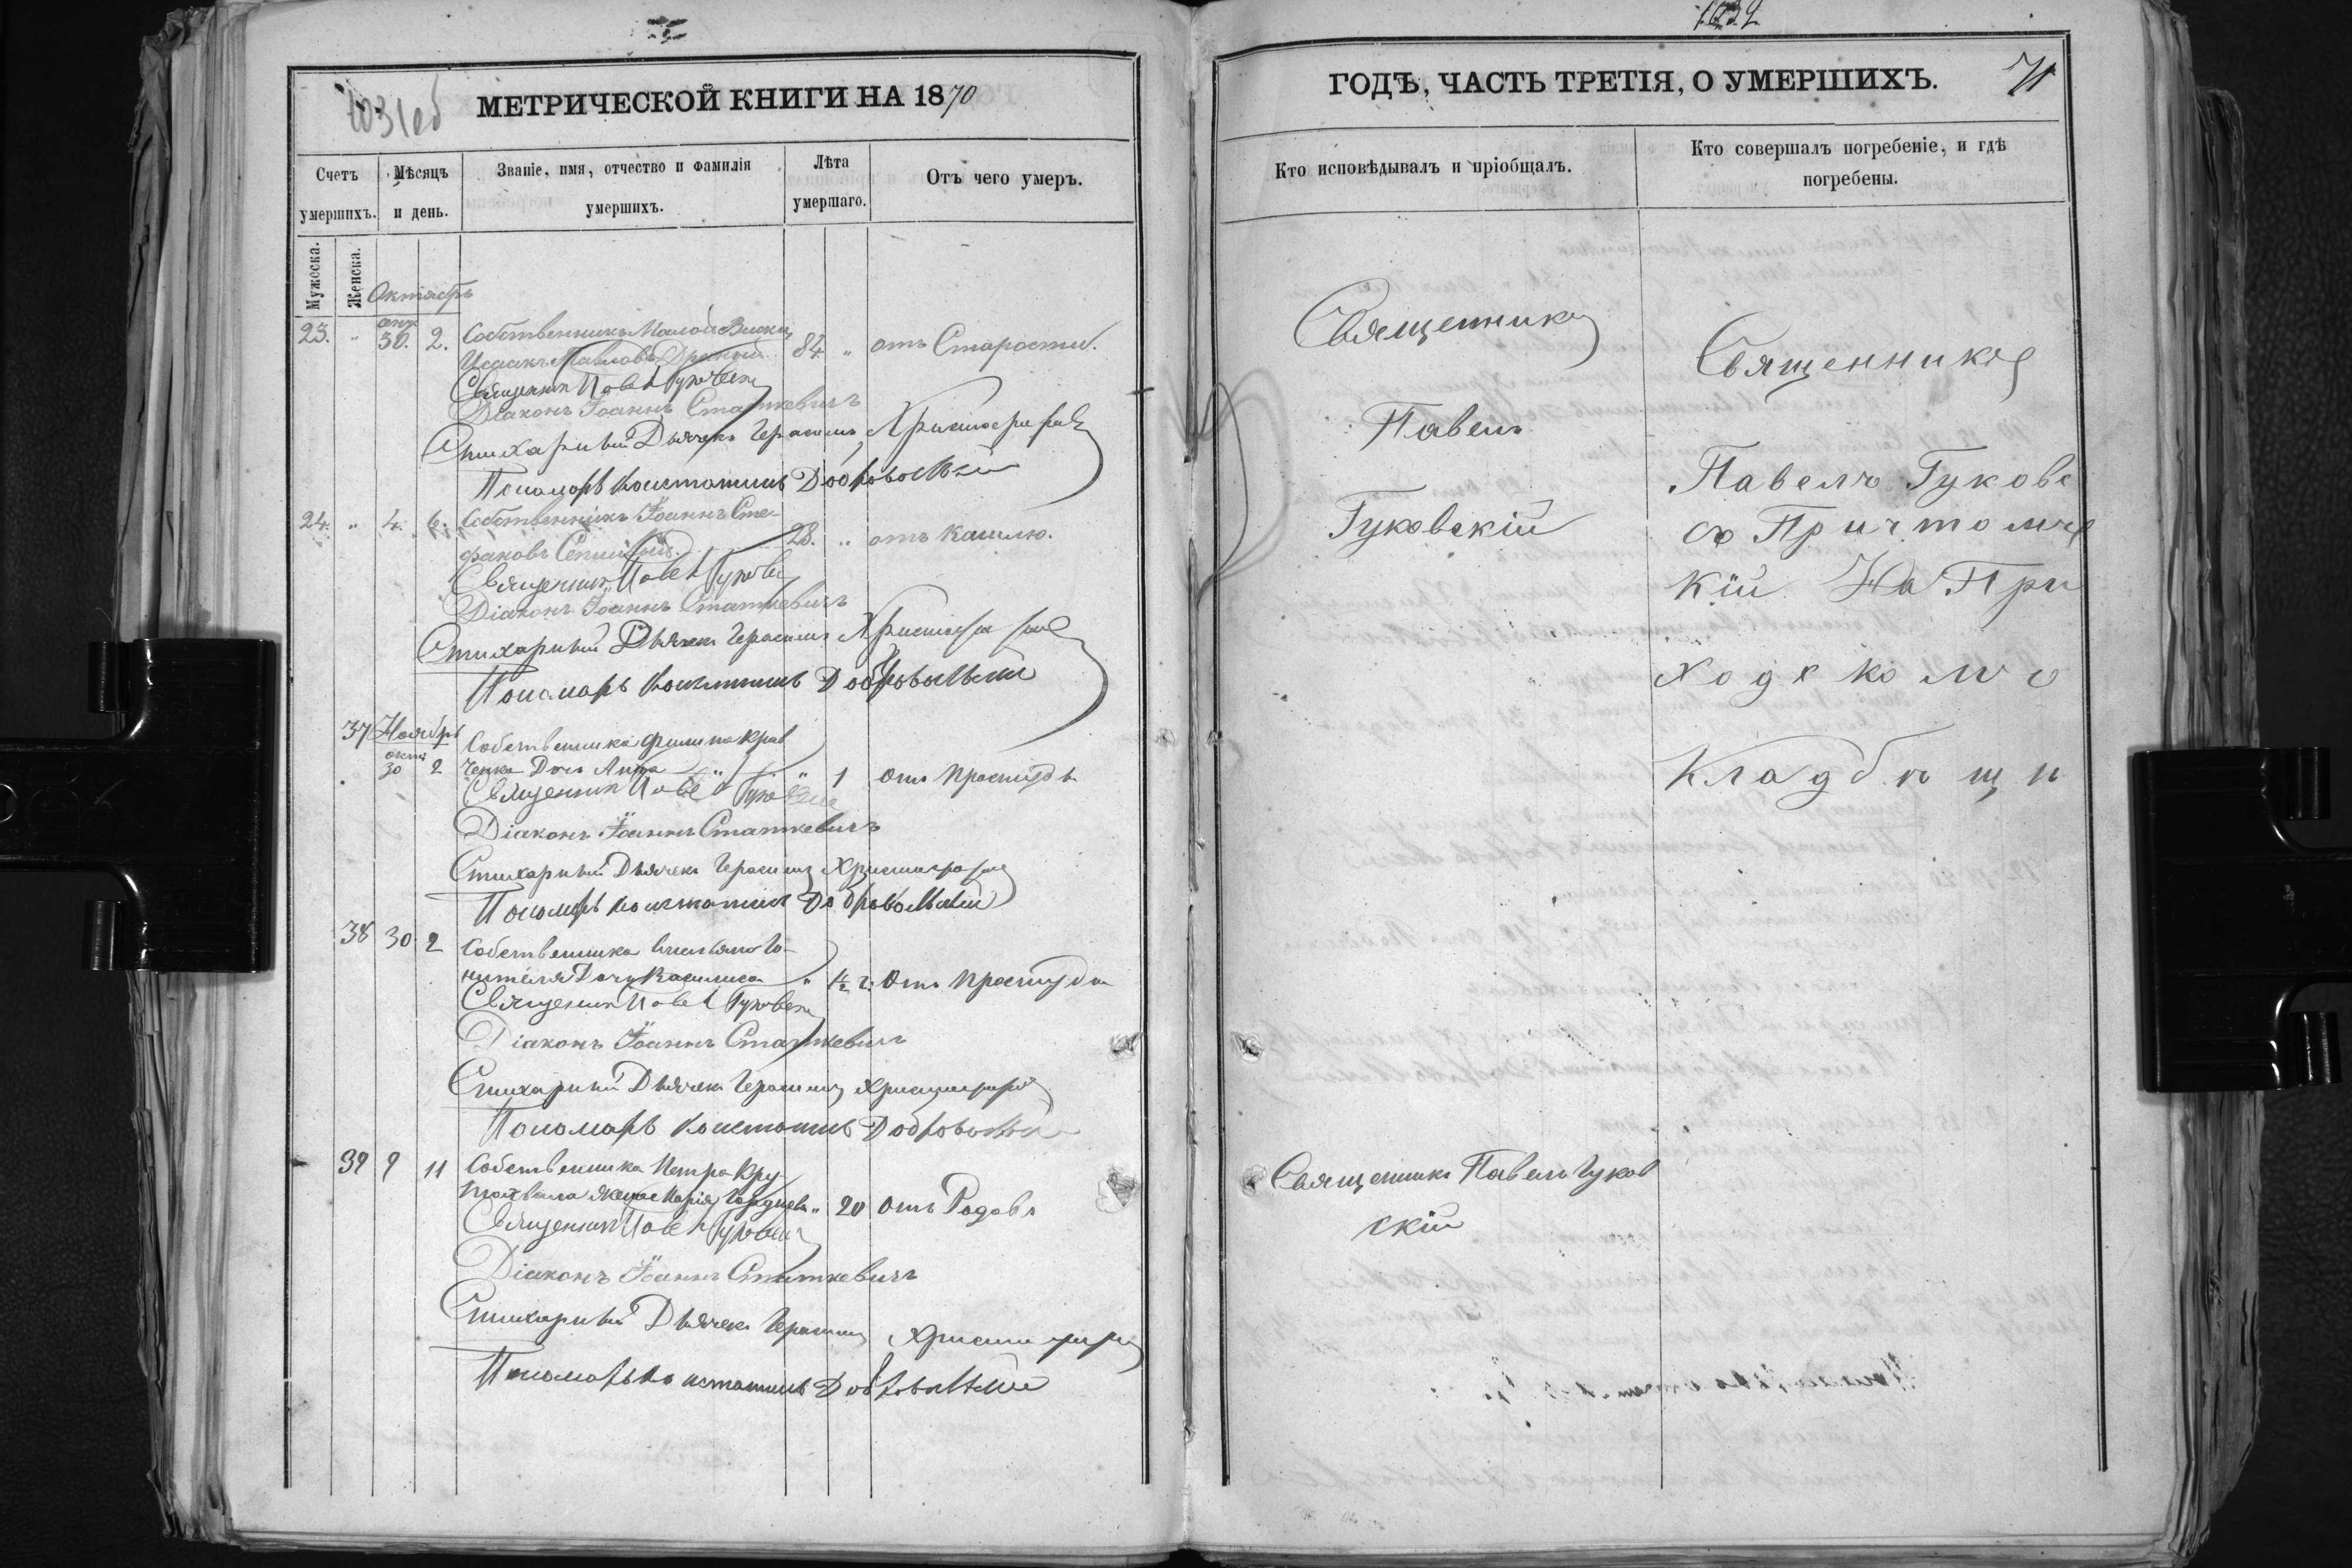 1032
МЕТРИЧЕСКОЙ КНИГИ НА 1870
1031об
Счетъ умершихъ.
Мѣсяцъ и день.
Званіе, имя, отчество и фамилія умершихъ.
Лѣта умершаго.
Отъ чего умеръ.
Мужеска.
Женска.
Октябрь
23. " 30. 2. Собственникъ Малой Виски
Исаакъ Павловъ 84. " отъ Старости.
Священникъ Павелъ Гуковскій
Діаконъ Іоаннъ Статкевичъ
Стихарный Дьячекъ Герасимъ
Пономарь Константинъ Добровольскій
24. " 4. 6. Собственникъ Іоаннъ Сте-
фановъ 28. " отъ кашлю.
Священникъ Павелъ Гуковскій
Діаконъ Іоаннъ Статкевичъ
Стихарный Дьячекъ Герасимъ
Пономарь Константинъ Добровольскій
37 Ноябрь
окт 30 2 Собственника Филипа Крав
ченка Дочь Анна " 1 отъ простуды
Священникъ Павелъ Гуковскій
Діаконъ Іоаннъ Статкевичъ
Стихарный Дьячекъ Герасимъ
Пономарь Константинъ Добровольскій
38 30 2 Собственника
Дочь Василиса " ½ г. отъ простуды
Священникъ Павелъ Гуковскій
Діаконъ Іоаннъ Статкевичъ
Стихарный Дьячекъ Герасимъ
Пономарь Константинъ Добровольскій
39 9 11 Собственника Петра
жена Марія " 20 отъ Родовъ
Священникъ Павелъ Гуковскій
Діаконъ Іоаннъ Статкевичъ
Стихарный Дьячекъ Герасимъ
Пономарь Константинъ Добровольскій
ГОДЪ, ЧАСТЬ ТРЕТІЯ, О УМЕРШИХЪ.
71
Кто исповѣдывалъ и пріобщалъ.
Кто совершалъ погребеніе, и гдѣ
погребены.
Священникъ
Павелъ
Гуковскій
Священникъ
Павелъ Гуковс
съ Причтомъ
кій На При
ходскомъ
Кладбищи
Священникъ Павелъ Гуков
скій